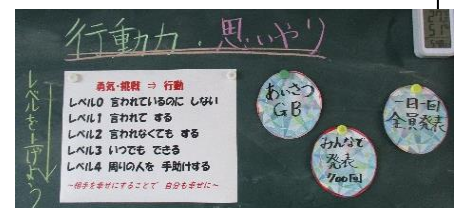 行動力・思いやり
レベルを上げよう
勇気・挑戦 ⇒ 行動
レベル0 言われているのに しない
レベル1 言われて する
レベル2 言われなくても する
レベル3 いつでも できる
レベル4 周りの人を 手助けする
～相手を幸せにすることで 自分も幸せに～
あいさつ
GB
みんなで
発表
700回
一日一回
全員発表